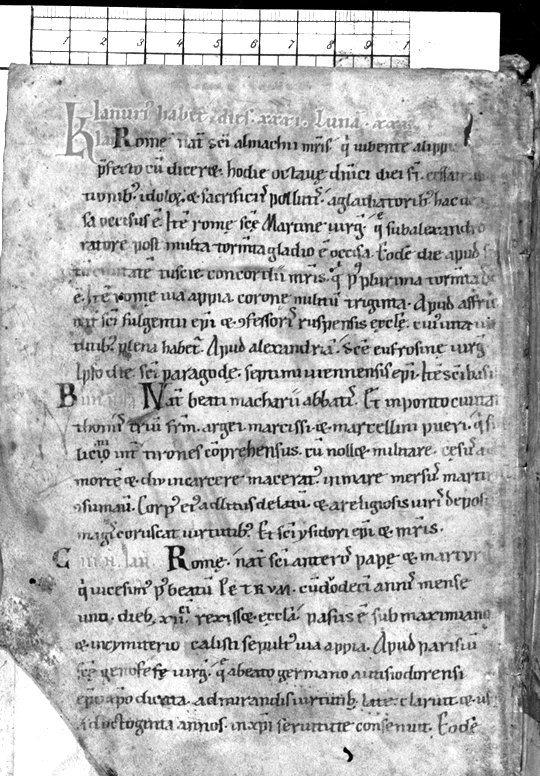 1 2 3 4 5 6 7 8 9 1
Kl Ianuri' habet dies xxxi. Luna. xxx.
Rome nat̄ sc̄i almachii mr̄is. q̄ iubente alippio
p̄fecto cū diceret. hodie octauę dn̄ici diei st̄. cessate
tionib' idoloꝝ & sacrificiis pollutis. a gladiatorib' hac de
sa occisus ē. Itē romę sc̄ę Martinę uirḡ. q̄ sub alexandro
ratore post multa tormta gladio ē occisa. Eodē die apud s
ciuitatē tuscie concordii mr̄is. q̄ p' plurima tormta
ē. Itē romę uia appia. coronę militū triginta. Apud affri
nat sc̄i fulgentii ep̄i & ꝯfessoris ruspensis ęccl̄ę. cui' uita
tutib' plena habet̄. Apud alexandriā. Sc̄ę eufrosinę uirḡ
Ipso die. sc̄i paragodę. septimi uiennensis ep̄i. Itē sc̄i basi
B Nat̄ beati macharii abbatis. Et in ponto ciuitat
thomis triū frm̄. argei. marcissi. & marcellini pueri. q̄ s
licinio int̄ tirones cōprehensus. cū nollet militare. cęsus
mortē & diu in carcere macerat'. in mare mersus. martir
ꝯsumauit. Corp' ei' ad litus delatū. & a religiosis uiris deposi
magis coruscat uirtutib'. Et sc̄i ysidori ep̄i & mr̄is.
C iii. N. Ian. Romę. nat̄ sc̄i anteros papę & martyr
q̄ uicesim' p' beatū PETRVM. cū duodecī annis mense
uno. dieb. xii.ci rexisset ęccl̄am passus ē sub maximiano
& in cymiterio calisti sepult' uia appia. Apud parisiū
sc̄ę genofefę uirḡ. q̄ a beato germano autisiodorensi
ep̄o xp̄o dicata. admirandis uirtutib. late claruit. & us
ad octoginta annos. in xp̄i seruitute consenuit. Eodē